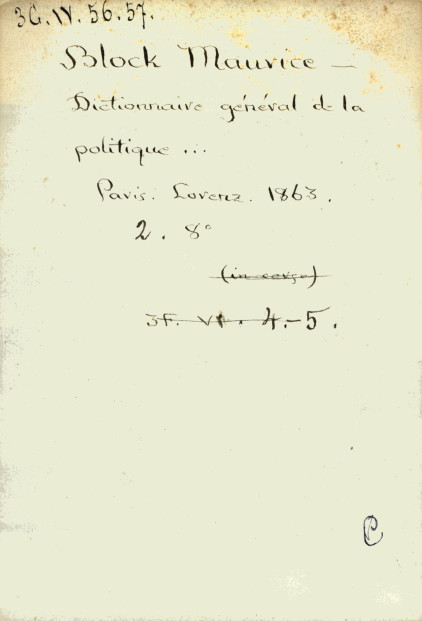 3G.IV.56.57.
Block Maurice —
Dictionnaire général de la
politique ...
Paris. Lorenz. 1863.
2. 8°
(in corso)
3F. VI. 4.-5.
P